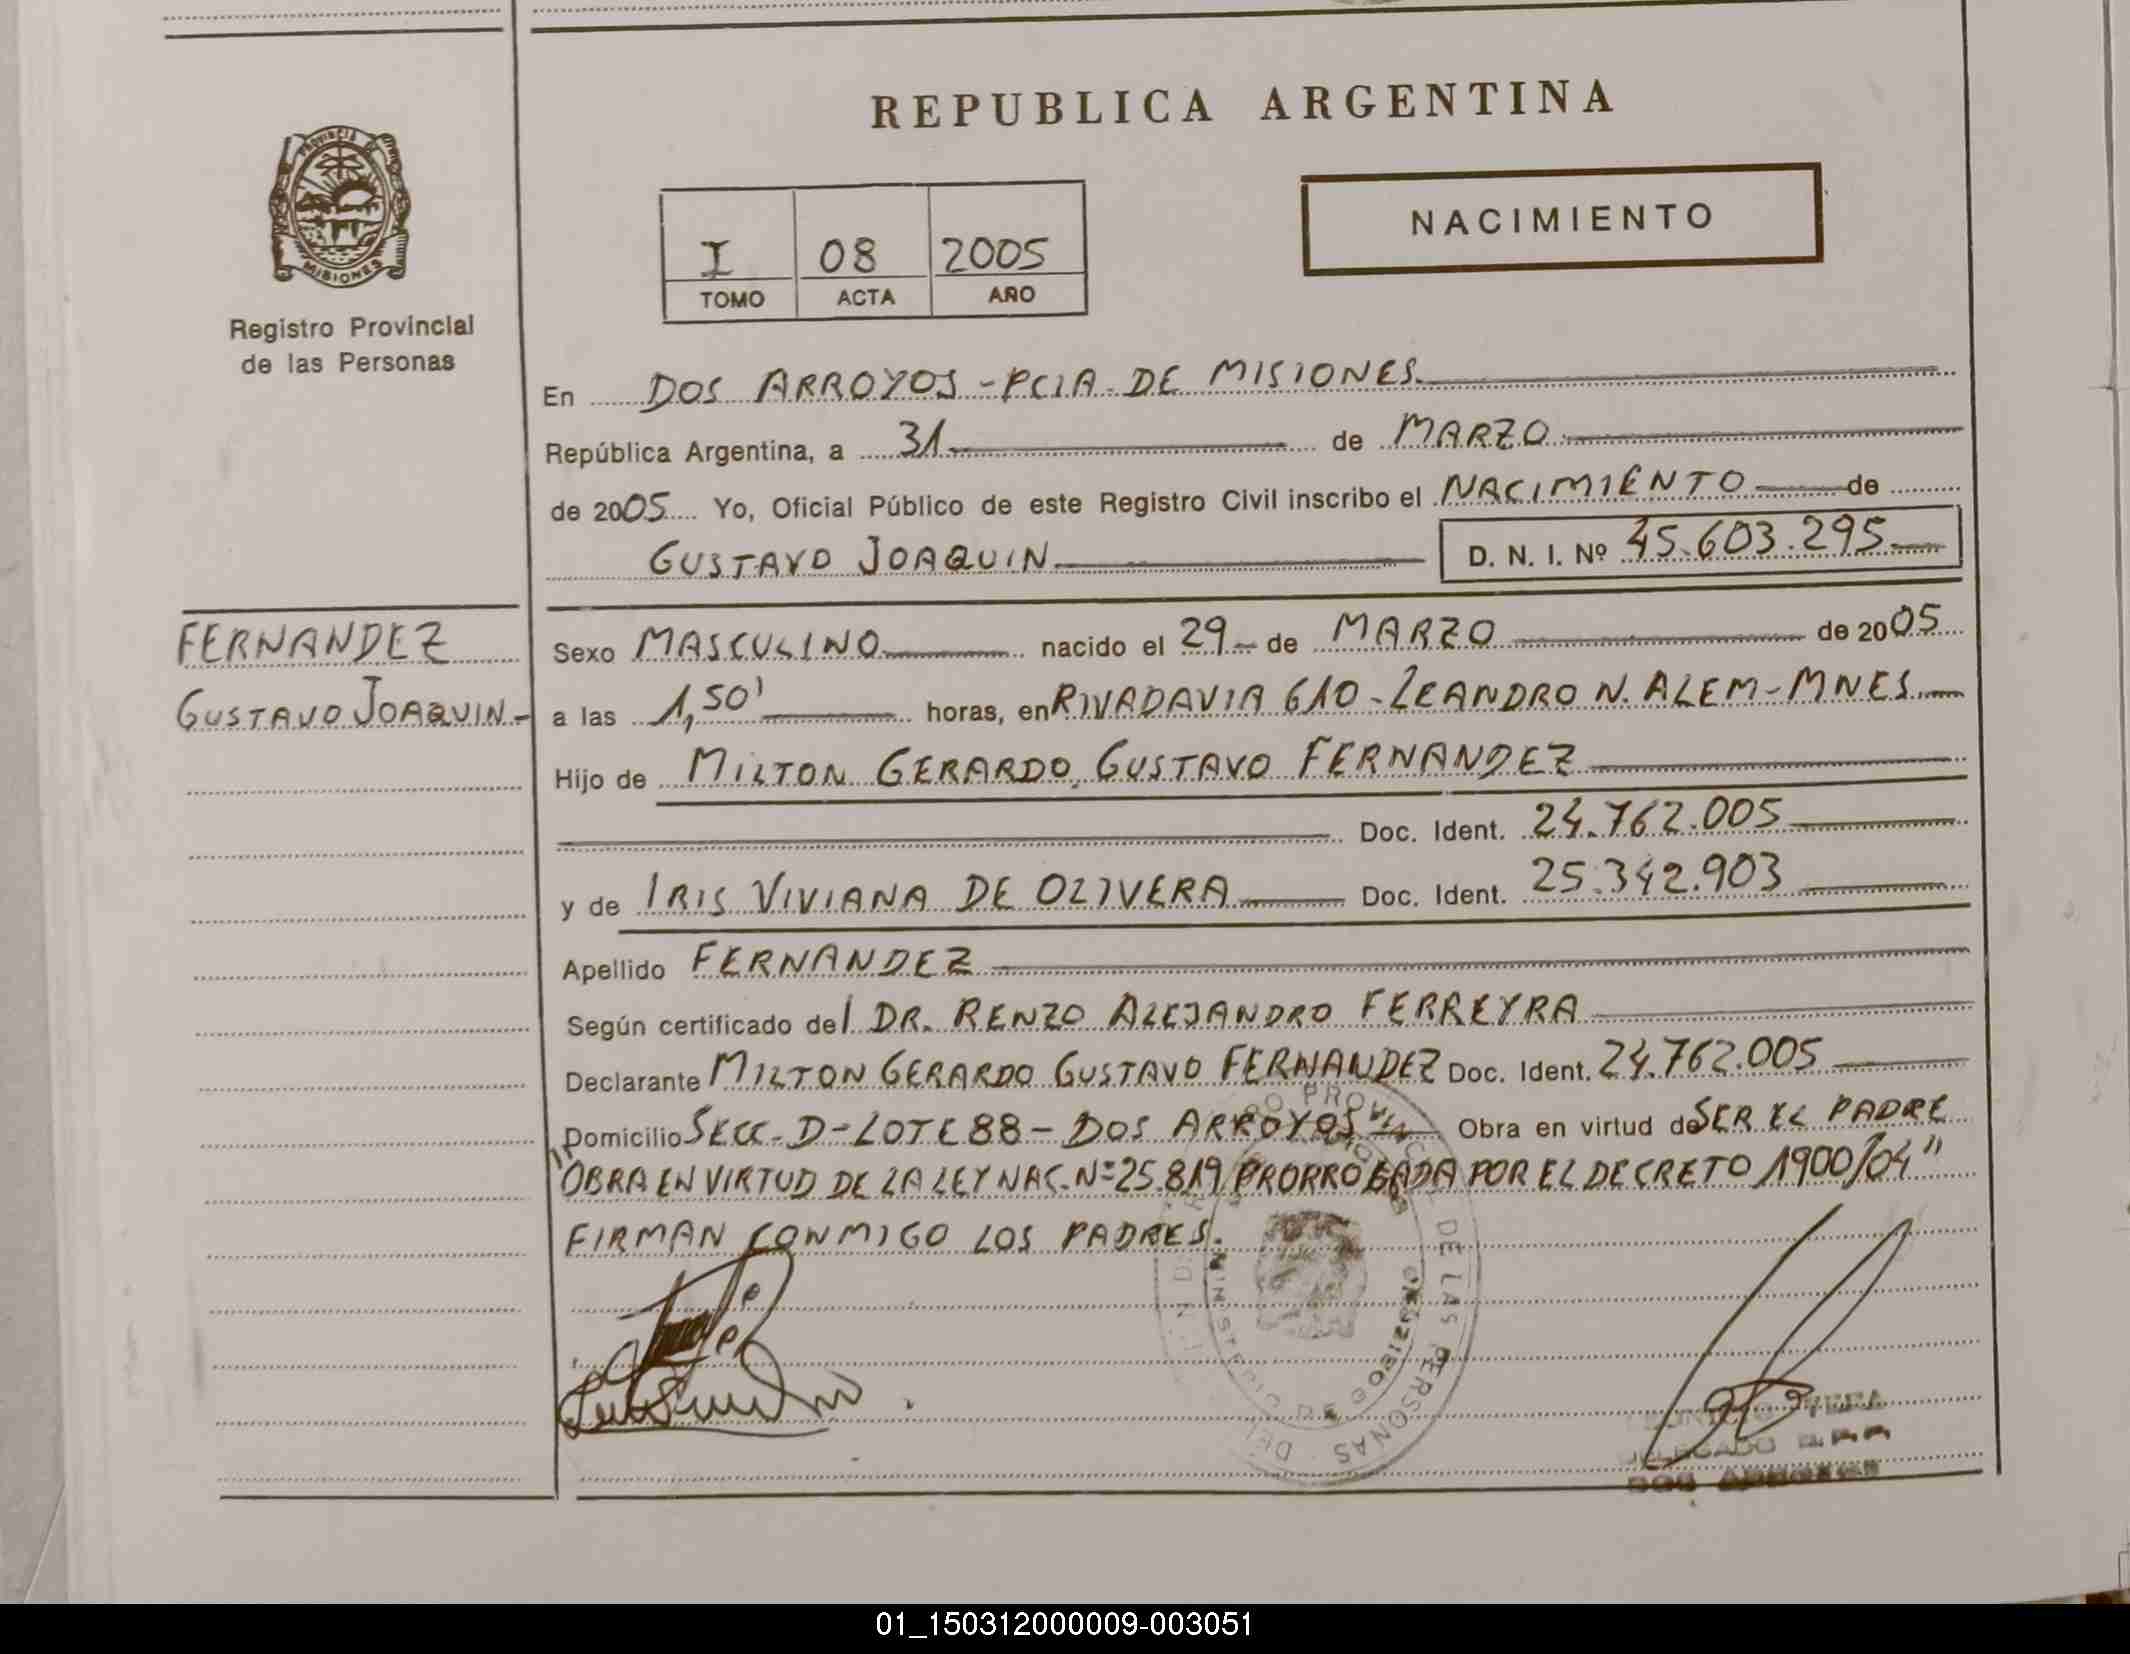 REPUBLICA ARGENTINA
PROVINCIA DE
MISIONES
Registro Provincial
de las Personas
NACIMIENTO
I 08 2005
TOMO ACTA AÑO
En DOS ARROYOS - PCIA. DE MISIONES.
República Argentina, a 31 de MARZO
de 2005 Yo, Oficial Público de este Registro Civil inscribo el NACIMIENTO de
GUSTAVO JOAQUIN D. N. I. Nº 45.603.295
FERNANDEZ
GUSTAVO JOAQUIN.-
Sexo MASCULINO nacido el 29 de MARZO de 2005
a las 1,50' horas, en RIVADAVIA 610 - LEANDRO N. ALEM - MNES.
Hijo de MILTON GERARDO GUSTAVO FERNANDEZ
Doc. Ident. 24.762.005
y de IRIS VIVIANA DE OLIVERA Doc. Ident. 25.342.903
Apellido FERNANDEZ
Según certificado del DR. RENZO ALEJANDRO FERREYRA
Declarante MILTON GERARDO GUSTAVO FERNANDEZ Doc. Ident. 24.762.005
Domicilio SECC. D - LOTE 88 - DOS ARROYOS Obra en virtud de SER EL PADRE
"OBRA EN VIRTUD DE LA LEY NAC. Nº 25.819 PRORROGADA POR EL DECRETO 1900/04"
FIRMAN CONMIGO LOS PADRES.
DE LAS PERSONAS
DELEGADO
DOS ARROYOS
01_150312000009-003051